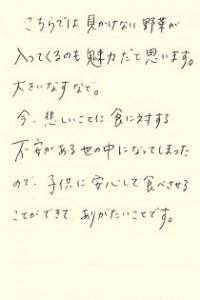 こちらでは見かけない野菜が
入ってくるのも魅力だと思います。
大きいなすなど。
今、悲しいことに食に対する
不安がある世の中になってしまった
ので、子供に安心して食べさせる
ことができてありがたいことです。